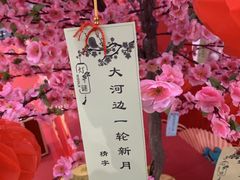 灯谜
大河边一轮新月
猜字